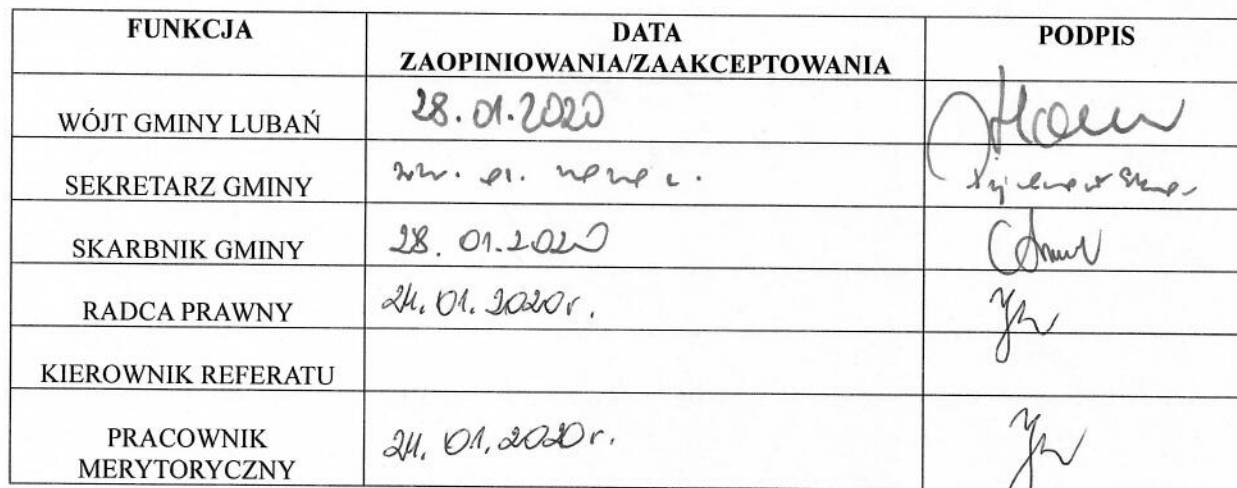 FUNKCJA DATA PODPIS
ZAOPINIOWANIA/ZAAKCEPTOWANIA
WÓJT GMINY LUBAŃ 28.01.2020
SEKRETARZ GMINY
SKARBNIK GMINY 28.01.2020
RADCA PRAWNY 24.01.2020r.
KIEROWNIK REFERATU
PRACOWNIK
MERYTORYCZNY 24.01.2020r.